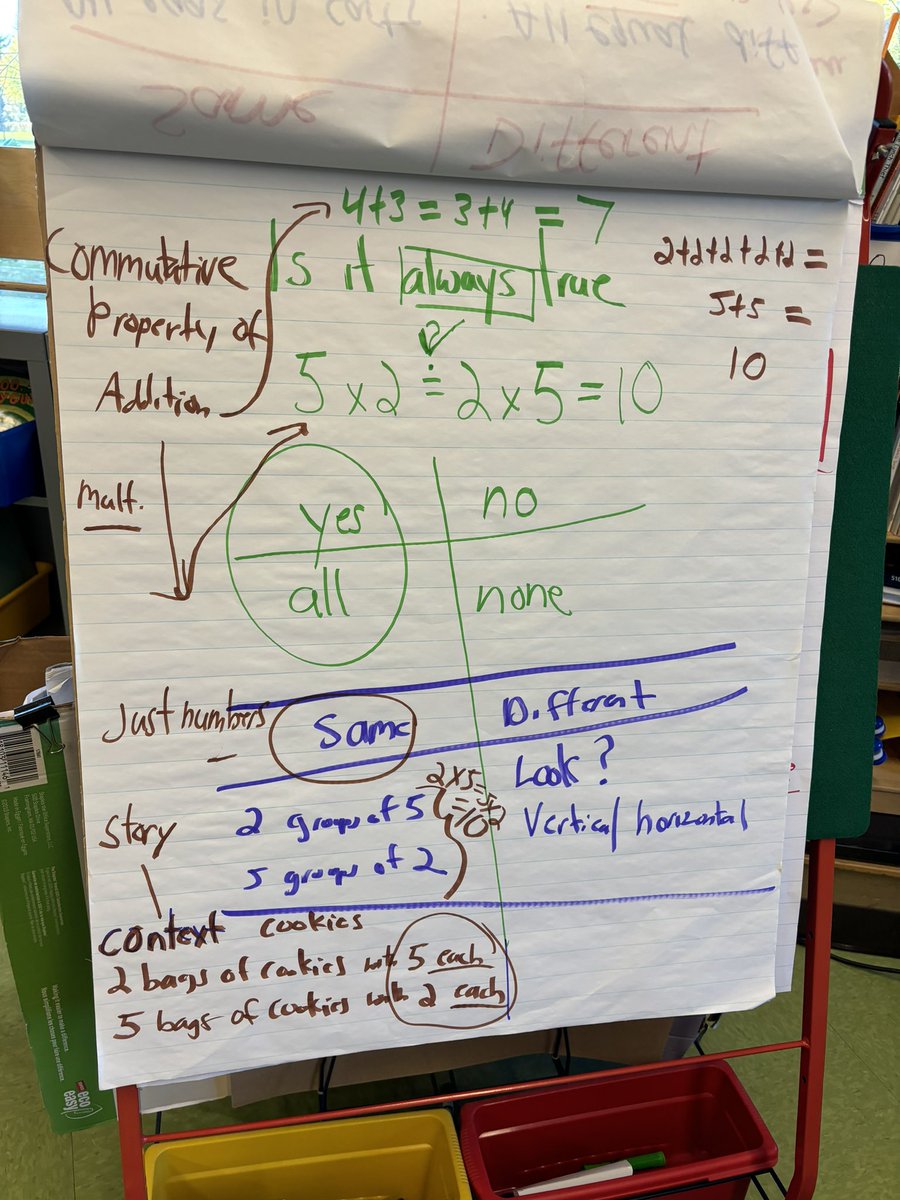 4+3 = 3+4 = 7
Commutative
Property of
Addition
Is it always true
2+2+2+2+2 =
5+5 =
10
5 x 2 = 2 x 5 = 10
Mult.
yes
no
all
none
Just numbers
Same
Different
Look?
2 x 5
Vertical horizontal
Story
2 groups of 5
5 groups of 2
context cookies
2 bags of cookies with 5 each
5 bags of cookies with 2 each
Same
Different
eco
easy